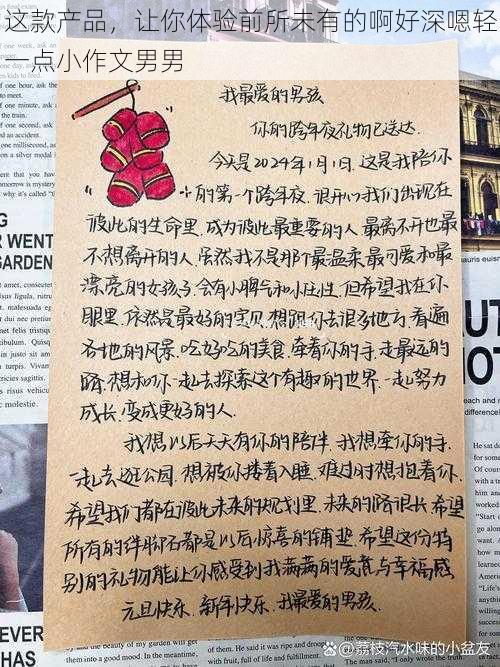 这款产品，让你体验前所未有的啊好深嗯轻
一点小作文男男
我最爱的男孩
你的跨年夜礼物已送达.
今天是2024年1月1日.这是我陪你
的第一个跨年夜.很开心我们出现在
彼此的生命里.成为彼此最重要的人.最离不开也最
不想离开的人.虽然我不是那个最温柔最可爱和最
漂亮的女孩子.会有小脾气和小任性.但希望我在你
眼里.依然是最好的宝贝.想跟你去很多地方.看遍
各地的风景.吃好吃的美食.牵着你的手.走最远的
路.想和你一起去探索这个有趣的世界.一起努力
成长.变成更好的人.
我想以后天天有你的陪伴.我想牵你的手.
一起去逛公园.想被你搂着入睡.难过时想抱着你.
希望我们都在彼此未来的规划里.未来的路很长.希望
所有的绊脚石都是以后惊喜的铺垫.希望这份特
别的礼物能让你感受到我满满的爱意与幸福感
元旦快乐.新年快乐.我最爱的男孩.
WENT
GARDEN
EVER
FIRST
@荔枝汽水味的小盆友